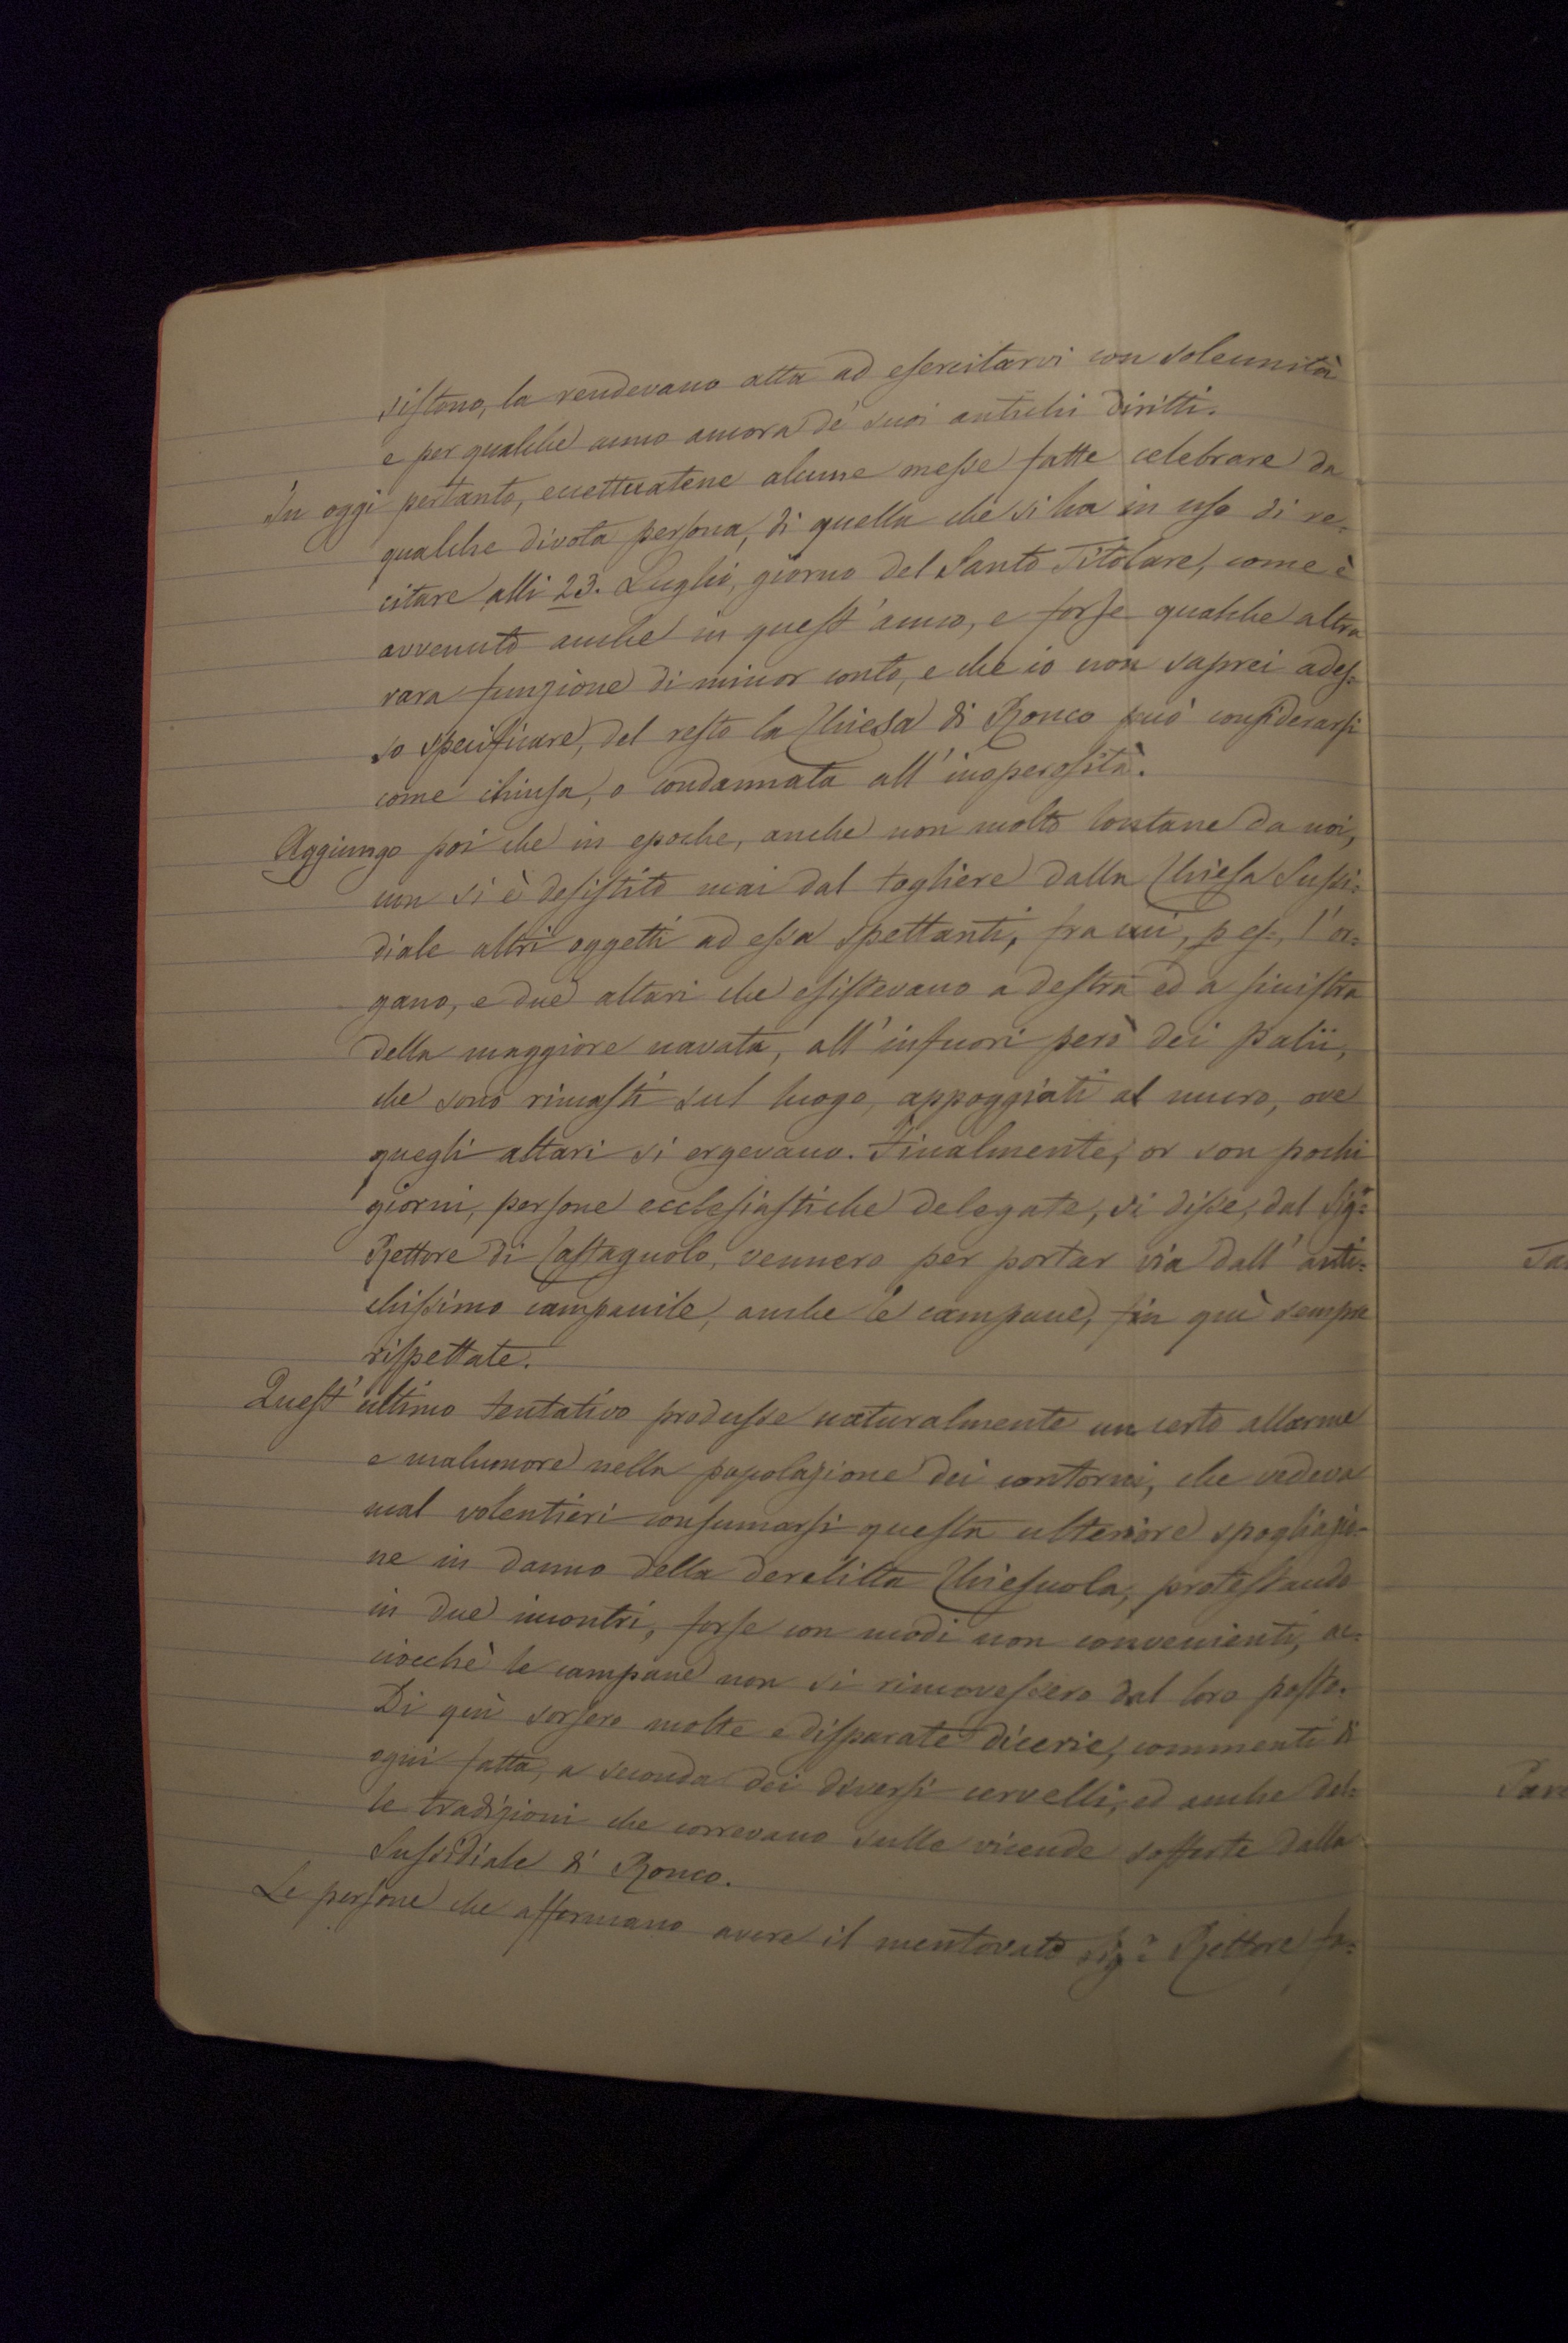 sistono, la rendevano atta ad esercitarvi con solennità
e per qualche anno ancora de' suoi antichi diritti.
In oggi pertanto, eccettuatene alcune messe fatte celebrare da
qualche divota persona, di quella che si ha in uso di re=
citare alli 23. Luglio, giorno del Santo Titolare, come è
avvenuto anche in quest'anno, e forse qualche altra
rara funzione di minor conto, e che io non saprei ades=
so specificare, del resto la Chiesa di Ronco può considerarsi
come chiusa, o condannata all'inoperosità.
Aggiungo poi che in epoche, anche non molto lontane da noi,
non si è desistito mai dal togliere dalla Chiesa Sussi=
diale altri oggetti ad essa spettanti, fra cui, p es=, l'or=
gano, e due altari che esistevano a destra ed a sinistra
della maggiore navata, all'infuori però dei palii,
che sono rimasti sul luogo, appoggiati al muro, ove
quegli altari si ergevano. Finalmente, or son pochi
giorni, persone ecclesiastiche delegate, si disse, dal Sig.r
Rettore di Castagnolo, vennero per portar via dall'anti=
chissimo campanile, anche le campane, fin quì sempre
rispettate.
Quest'ultimo tentativo produsse naturalmente un certo allarme
e malumore nella popolazione dei contorni, che vedeva
mal volentieri consumarsi questa ulteriore spogliazio=
ne in danno della derelitta Chiesuola, protestando
in due incontri, forse con modi non convenienti, ac=
ciocchè le campane non si rimovessero dal loro posto.
Di quì sorsero molte e disparate dicerie, commenti di
ogni fatta, a seconda dei diversi cervelli, ed anche del=
le tradizioni che correvano sulle vicende sofferte dalla
Sussidiale di Ronco.
Le persone che affermano avere il mentovato Sig.r Rettore fa=